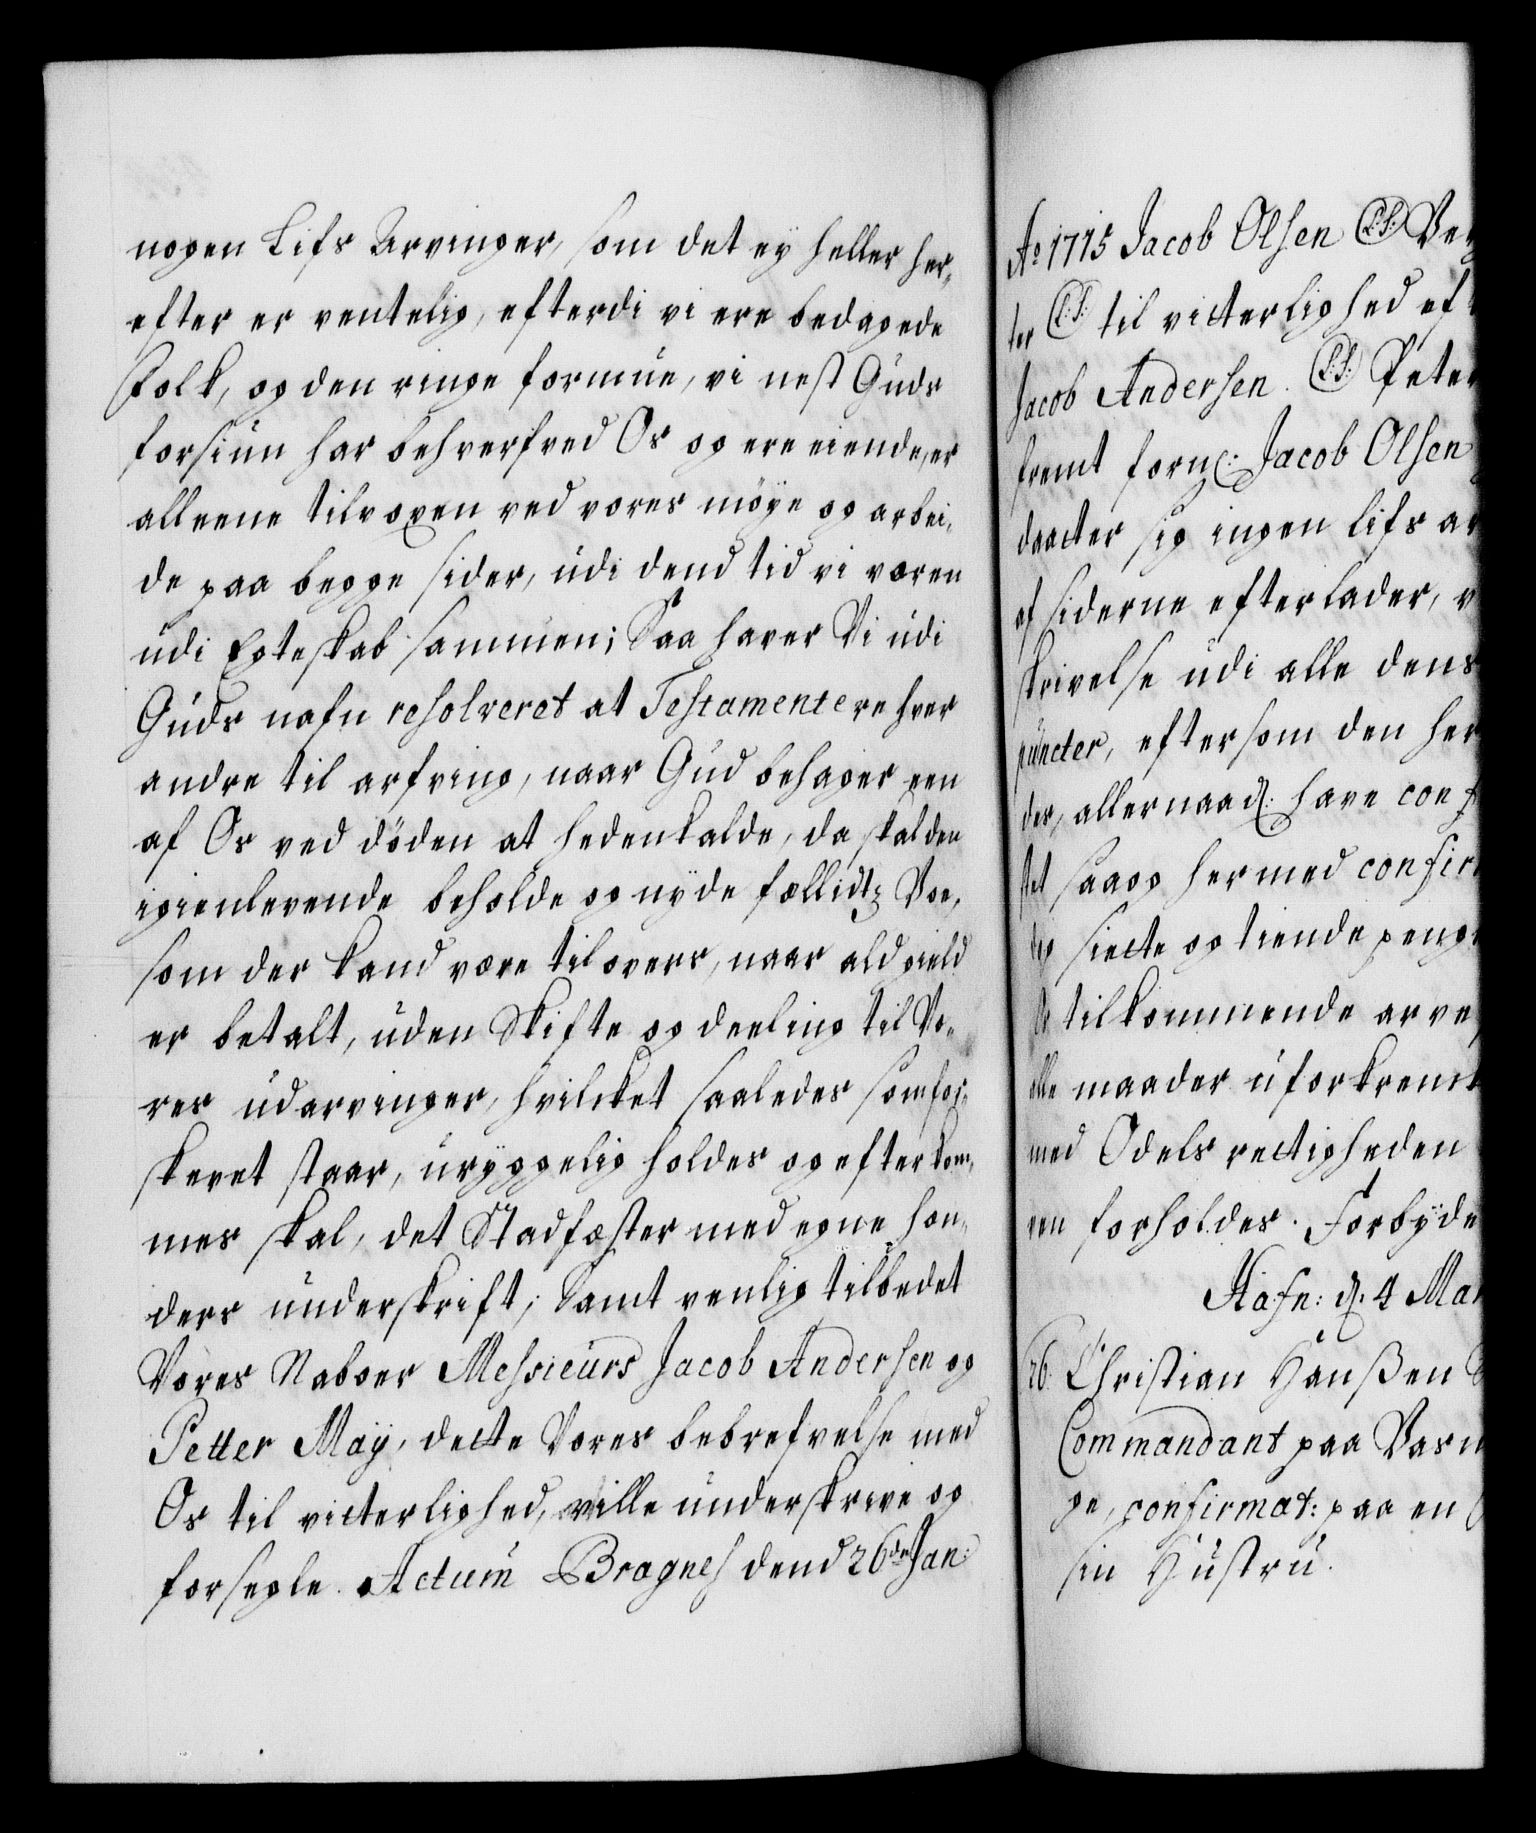 nogen Lifs Arvinger, som det ey heller her,
efter er ventelig, efterdi vi ere bedagede
Folk, og den ringe formue, vi nest Guds
forsiun har behverfved Os og ere eiende, er
alleene tilvoxen ved vores möye og arbei,
de paa begge sider, udi dend tid vi varen
udi Egteskab sammen; Saa haver Vi udi
Guds nafn resolveret at Testamentere hver
andre til arfving, naar Gud behager een
af Os ved döden at hedenkalde, da skal den
igienlevende beholde og nyde fællidtz Boe,
som der kand være tilovers, naar ald gield
er betalt, uden Skifte og deeling til Vo,
res udarvinger, hvilcket saaledes som for,
skevet staar, uryggelig holdes og efterkom,
mes skal, det Stadfæster med egne hæn,
ders underskrift; Samt venlig tilbedet
Vores Naboer Messieurs Jacob Andersen og
Petter Maÿ, dette Vores bebrefvelse med
Os til vitterlighed, ville underskrive og
forsegle. Actum Bragnes dend 26de Jan:
Ao 1715 Jacob Olsen (L.S.)
ter (L.S.) til vitterlighed ef
Jacob Andersen. (L.S.) Peter
fremt forne: Jacob Olsen
daatter sig ingen lifs ar
af siderne efterlader, v
skrivelse udi alle dens
puncter, eftersom den her
des, allernaad: have conf
tet saaog hermed confir
siette og tiende penge
tilkommende arve
alle maader uforkrenk
med Odels rettigheden
een forholdes. Forbyde
Hafn: d. 4 Mar
26. Christian Hanßen
Commandant paa Bas
ge, confirmat: paa en
sin Hustru.